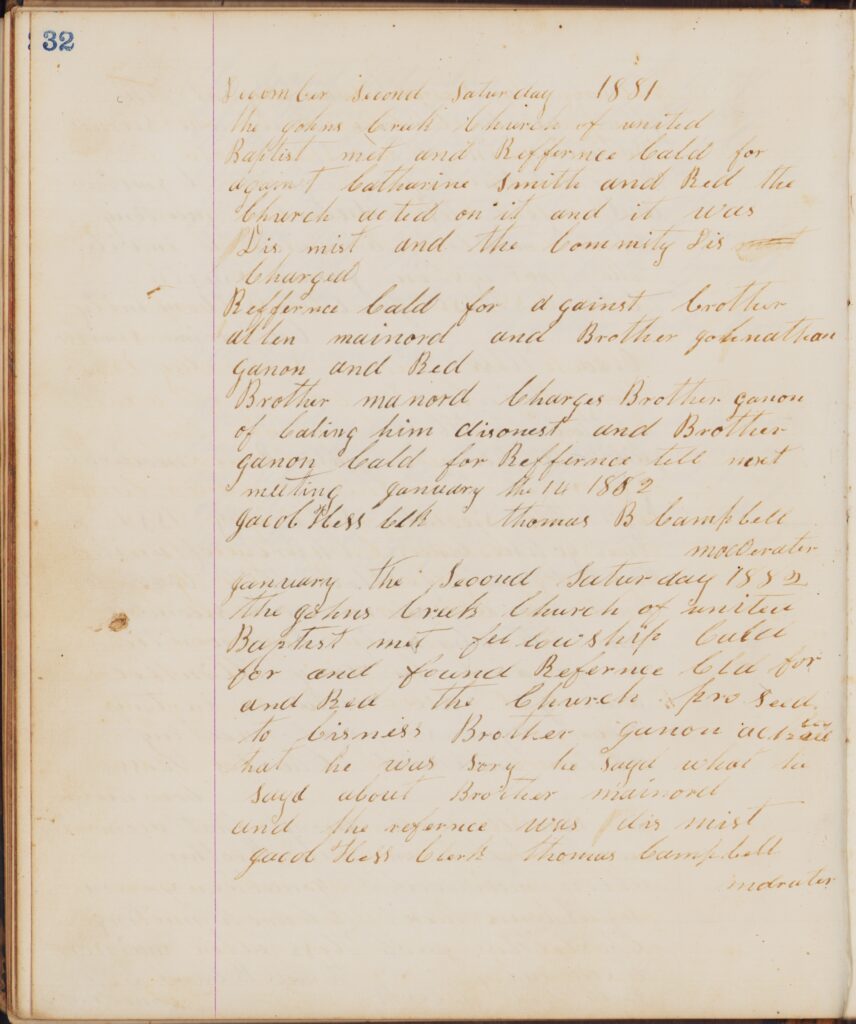 32
December Second Saturday 1881
the Johns Creek Church of united
Baptist met and Reffernce Cald for
against Catharine Smith and Red the
Church acted on it and it was
Dis mist and the Commity Dis
Charged
Reffernce Cald for against brother
allen mainord and Brother Johnathan
ganon and Red
Brother manord Charges Brother ganon
of Caling him disonest and Brother
ganon Cald for Reffernce till next
meeting January the 14 1882
Jacob Hess Clk thomas B Campbell
moderater
January the Second Saturday 1882
the Johns Creek Church of united
Baptist met fellowship Cald
for and found Refernce Cld for
and Red the Church pro seed
to bisness Brother ganon
hat he was sory he sayd what he
sayd about Brother mainord
and the refernce was dis mist
Jacob Hess Clerk thomas Campbell
mdrater